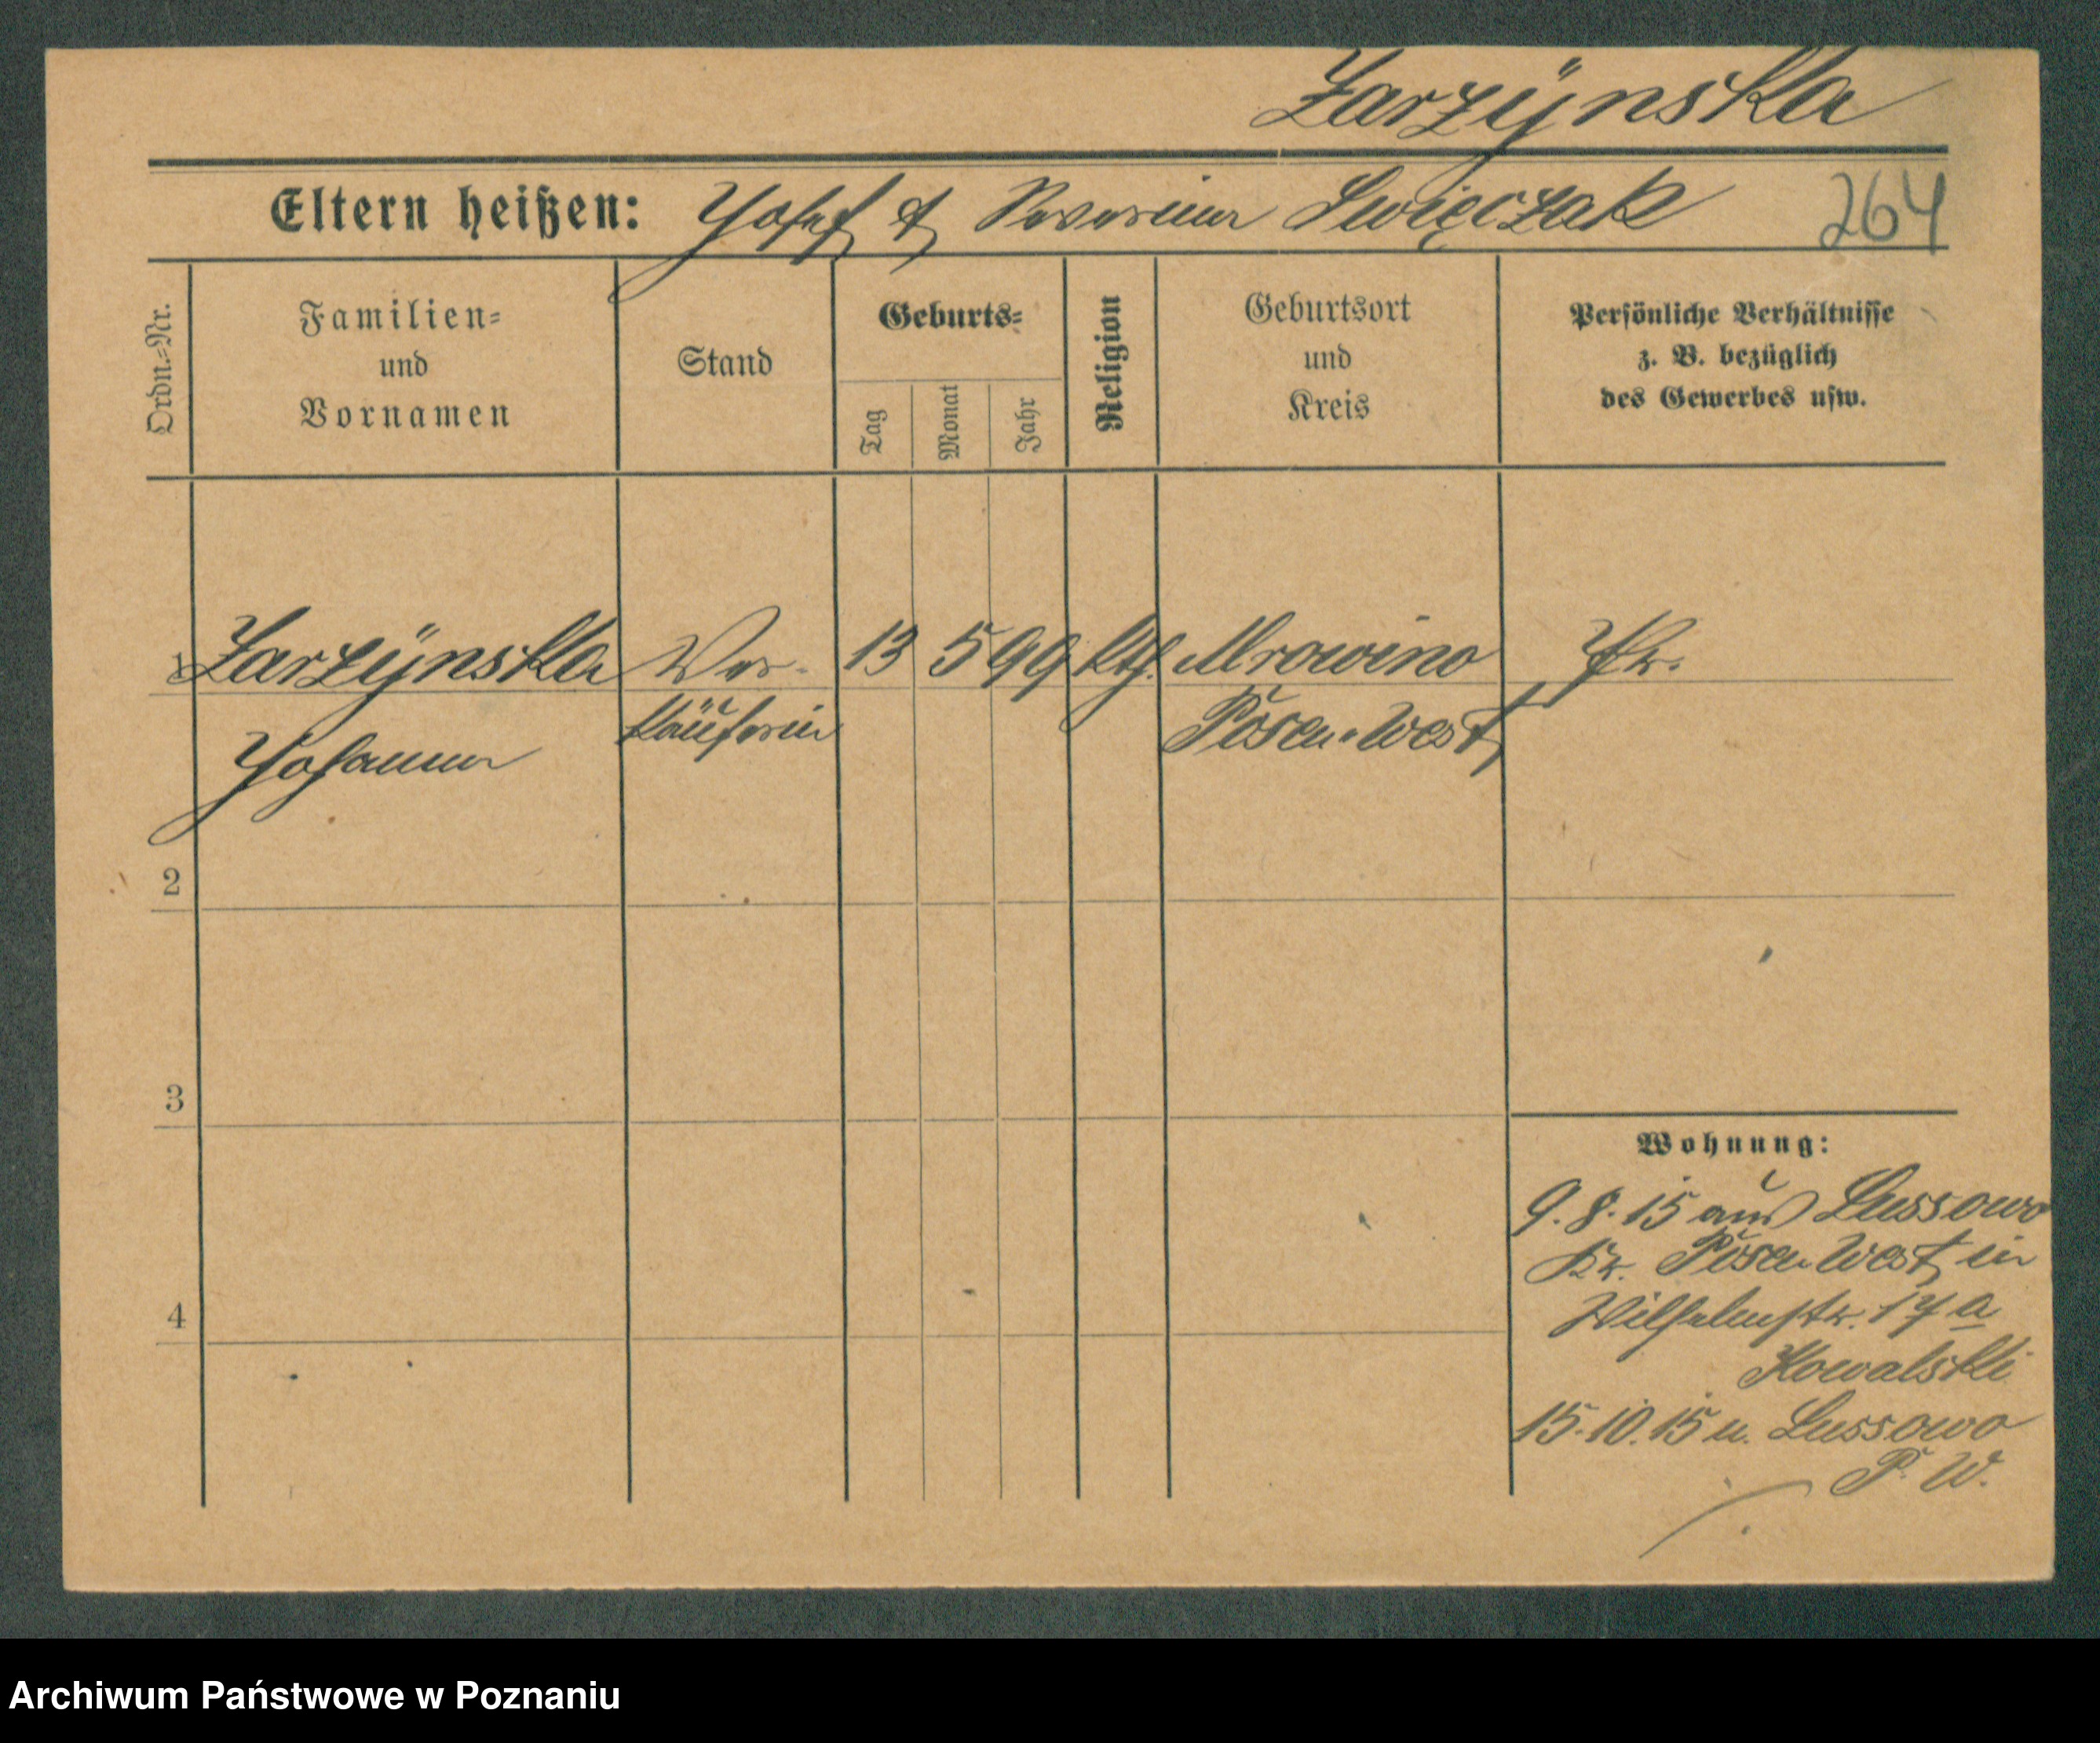 Zarzÿnska
Eltern heißen: Josef & Severina Swięczak 264
Ordn.-Nr.
Familien-
und
Vornamen
Stand
Geburts-
Tag
Monat
Jahr
Religion
Geburtsort
und
Kreis
Persönliche Verhältnisse
z. B. bezüglich
des Gewerbes usw.
1 Zarzÿnska Ver- 13 5 99 kth. Mrowino
Johanna käuferin Posen-West
2
3
4
Wohnung:
9.8.15 aus Lussowo
Kr. Posen West, in
Wilhelmstr. 17 a
Kowalski
15.10.15 n. Lussowo
P. W.
Archiwum Państwowe w Poznaniu